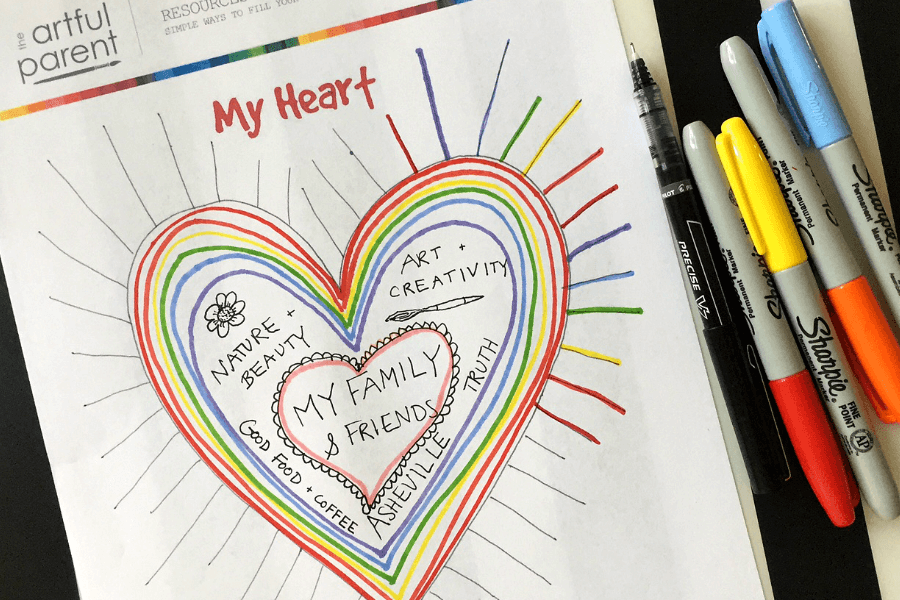 the
artful
parent
RESOURCES
SIMPLE WAYS TO FILL YOUR
My Heart
ART +
CREATIVITY
NATURE +
BEAUTY
MY FAMILY
& FRIENDS
TRUTH
GOOD FOOD + COFFEE
ASHEVILLE
PILOT
PRECISE V5
Sharpie
Permanent Marker
Sharpie
Permanent Marker
Sharpie
Sharpie
FINE POINT
AP